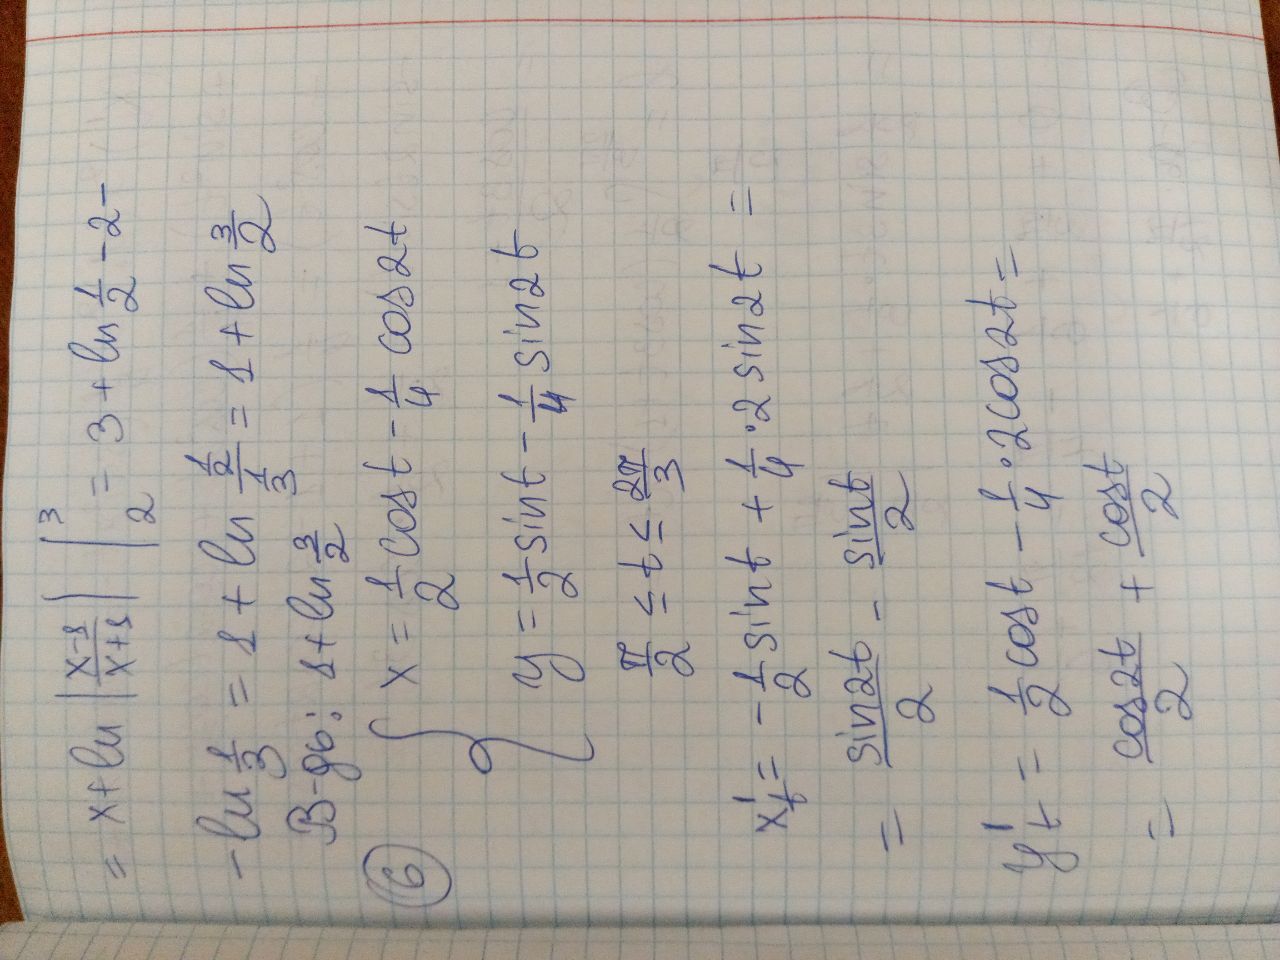 = x + ln |x-1/x+1| |₂³ = 3 + ln 1/2 - 2 -
- ln 1/3 = 1 + ln (1/2)/(1/3) = 1 + ln 3/2
В-дь: 1 + ln 3/2
⑥ { x = 1/2 cost - 1/4 cos2t
y = 1/2 sint - 1/4 sin2t
π/2 ≤ t ≤ 2π/3
x't = -1/2 sint + 1/4 · 2 sin2t =
= sin2t/2 - sint/2
y't = 1/2 cost - 1/4 · 2cos2t =
= cos2t/2 + cost/2